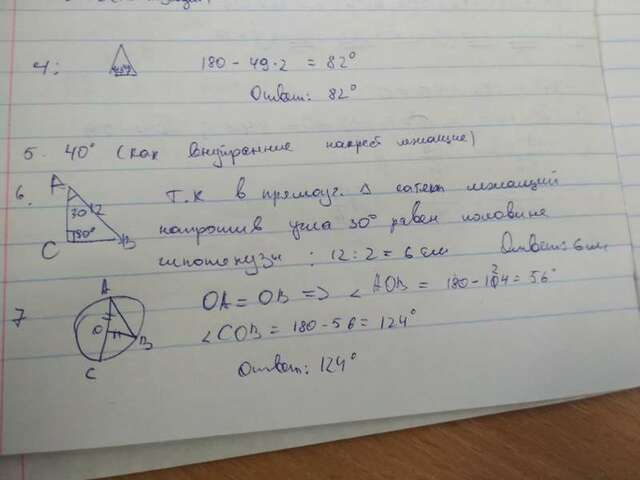 4: 49° 180 - 49·2 = 82°
Ответ: 82°
5. 40° (как внутренние накрест лежащие)
6. A 30° 12 C 90° B
Т.к в прямоуг. Δ катет лежащий
напротив угла 30° равен половине
гипотенузы : 12:2 = 6 см Ответ: 6 см
7 A O B C
OA = OB => ∠AOB = 180 - 124 = 56°
∠COB = 180 - 56 = 124°
Ответ: 124°